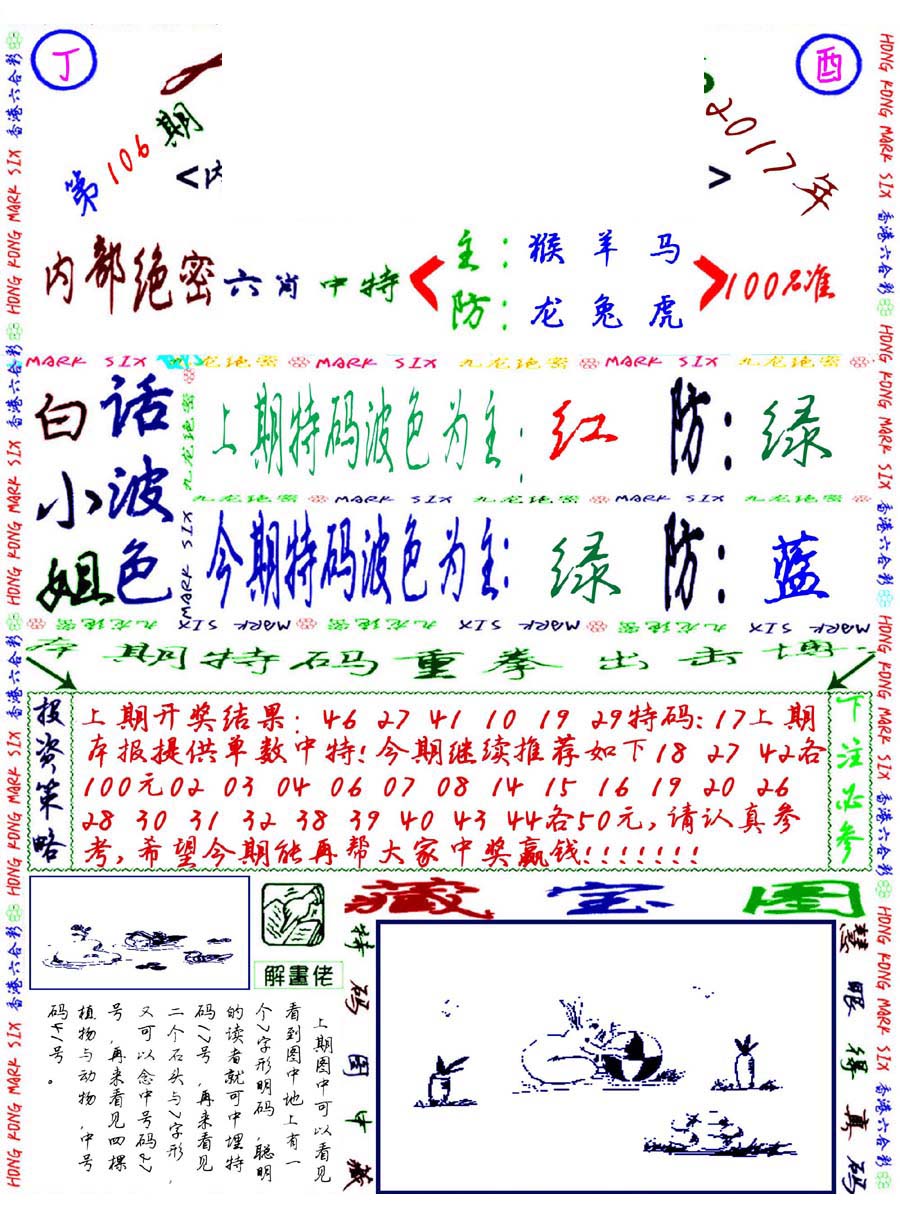 丁
酉
第106期
2017年
<内
>
内部绝密六肖中特
主：猴 羊 马
防：龙 兔 虎
100%准
MARK SIX 九龙绝密 MARK SIX 九龙绝密 MARK SIX 九龙绝密
白小姐
话波色
上期特码波色为主：红 防：绿
九龙绝密 MARK SIX 九龙绝密 MARK SIX 九龙绝密
今期特码波色为主：绿 防：蓝
MARK SIX 九龙绝密 MARK SIX 九龙绝密 MARK SIX 九龙绝密
本期特码重拳出击博
投资策略
上期开奖结果：46 27 41 10 19 29特码:17上期
本报提供单数中特!今期继续推荐如下18 27 42各
100元02 03 04 06 07 08 14 15 16 19 20 26
28 30 31 32 38 39 40 43 44各50元,请认真参
考,希望今期能再帮大家中奖赢钱!!!!!!!
下注必参
藏宝图
解畫佬
上期图中可以看见
看到图中地上有一
个7字形明码,聪明
的读者就可中埋特
码17号,再来看见
二个石头与7字形,
又可以念中号码27
号,再来看见四棵
植物与动物,中号
码41号。
特码图中藏
慧眼得真码
HONG KONG MARK SIX 香港六合彩
HONG KONG MARK SIX 香港六合彩